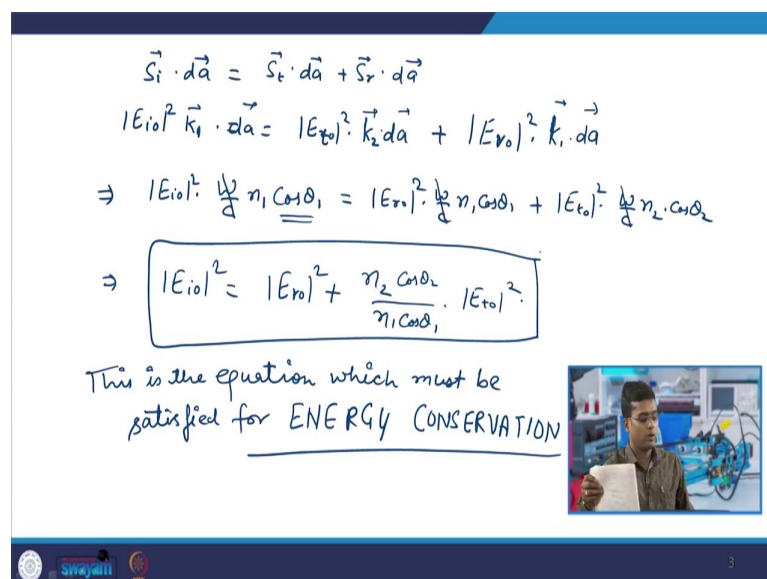 S⃗i · d⃗a = S⃗t · d⃗a + S⃗r · d⃗a
|Eio|² k⃗₁ · d⃗a = |Eto|² · k⃗₂ d⃗a + |Ero|² · k⃗₁ · d⃗a
⇒ |Eio|² · ω/c n₁ Cosθ₁ = |Ero|² · ω/c n₁ Cosθ₁ + |Eto|² · ω/c n₂ · Cosθ₂
⇒ |Eio|² = |Ero|² + n₂ Cosθ₂ / n₁ Cosθ₁ · |Eto|² ·
This is the equation which must be
satisfied for ENERGY CONSERVATION
swayam
3